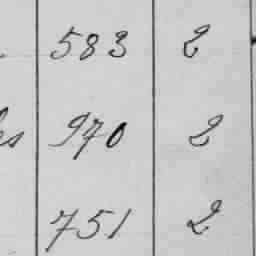 583 2
es 970 2
751 2